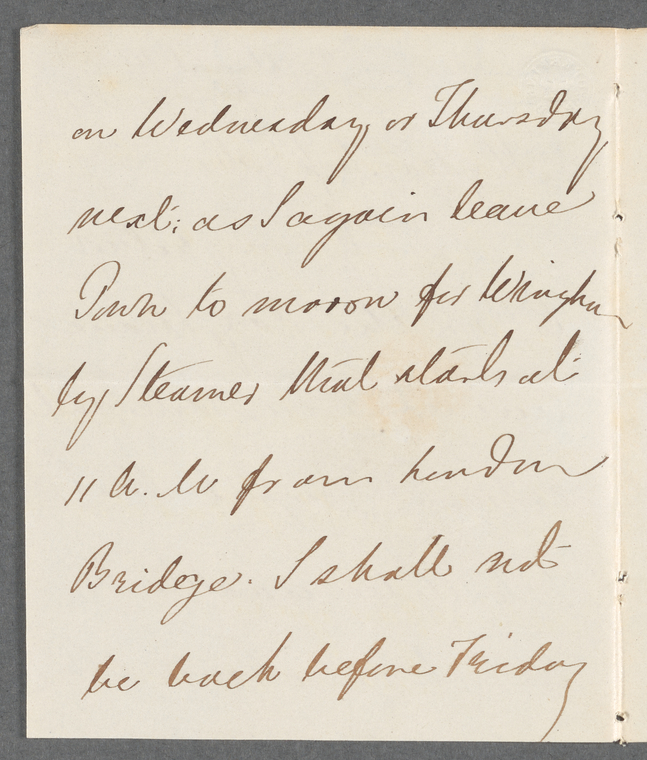 on Wednesday, or Thursday
next; as I again leave
Town to morrow for Wingham
by Steamer that starts at
11 A. M from London
Bridge. I shall not
be back before Friday